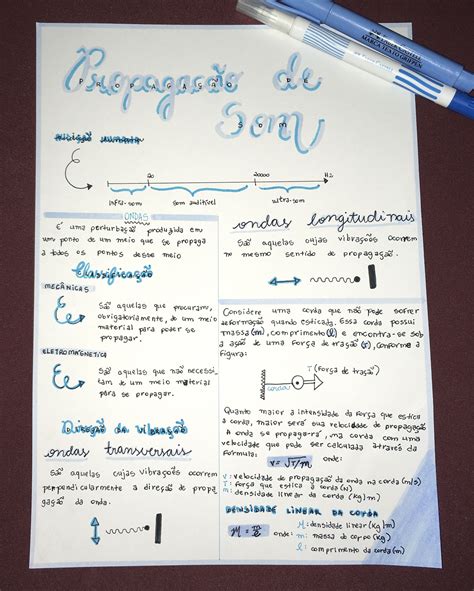 Propagação de
PROPAGAÇÃO DE
Som
SOM
audição humana
20
20000
Hz
infra-som
som audível
ultra-som
ONDAS
É uma perturbação produzida em
um ponto de um meio que se propaga
a todos os pontos desse meio
Classificação
MECÂNICAS
São aquelas que procuram,
obrigatoriamente, de um meio
material para poder se
propagar.
ELETROMAGNETICA
São aquelas que não necessi-
tam de um meio material
para se propagar.
Direção da vibração
ondas transversais
São aquelas cujas vibrações ocorrem
perpendicularmente a direção de propa
gação da onda.
ondas longitudinais
São aquelas cujas vibrações ocorrem
no mesmo sentido de propagação.
Considere uma corda que não pode sofrer
deformação quando esticada. Essa corda possui
massa (m), comprimento (l) e encontra-se sob
a ação de uma Força de tração (T), conforme a
Figura:
T (Força de tração)
corda
Quanto maior a intensidade da Força que estica
a corda, maior será sua velocidade de propagação
A onda se propaga-rá, na corda com uma
velocidade que pode ser calculada através da
formula: v = √T/m onde:
v: velocidade de propagação da onda na corda (m/s)
T: força que estica a corda (N)
m: densidade linear da corda (kg/m)
DENSIDADE LINEAR DA CORDA
M = m/l onde:
M: densidade linear (kg/m)
m: massa do corpo (kg)
l: comprimento da corda (m)